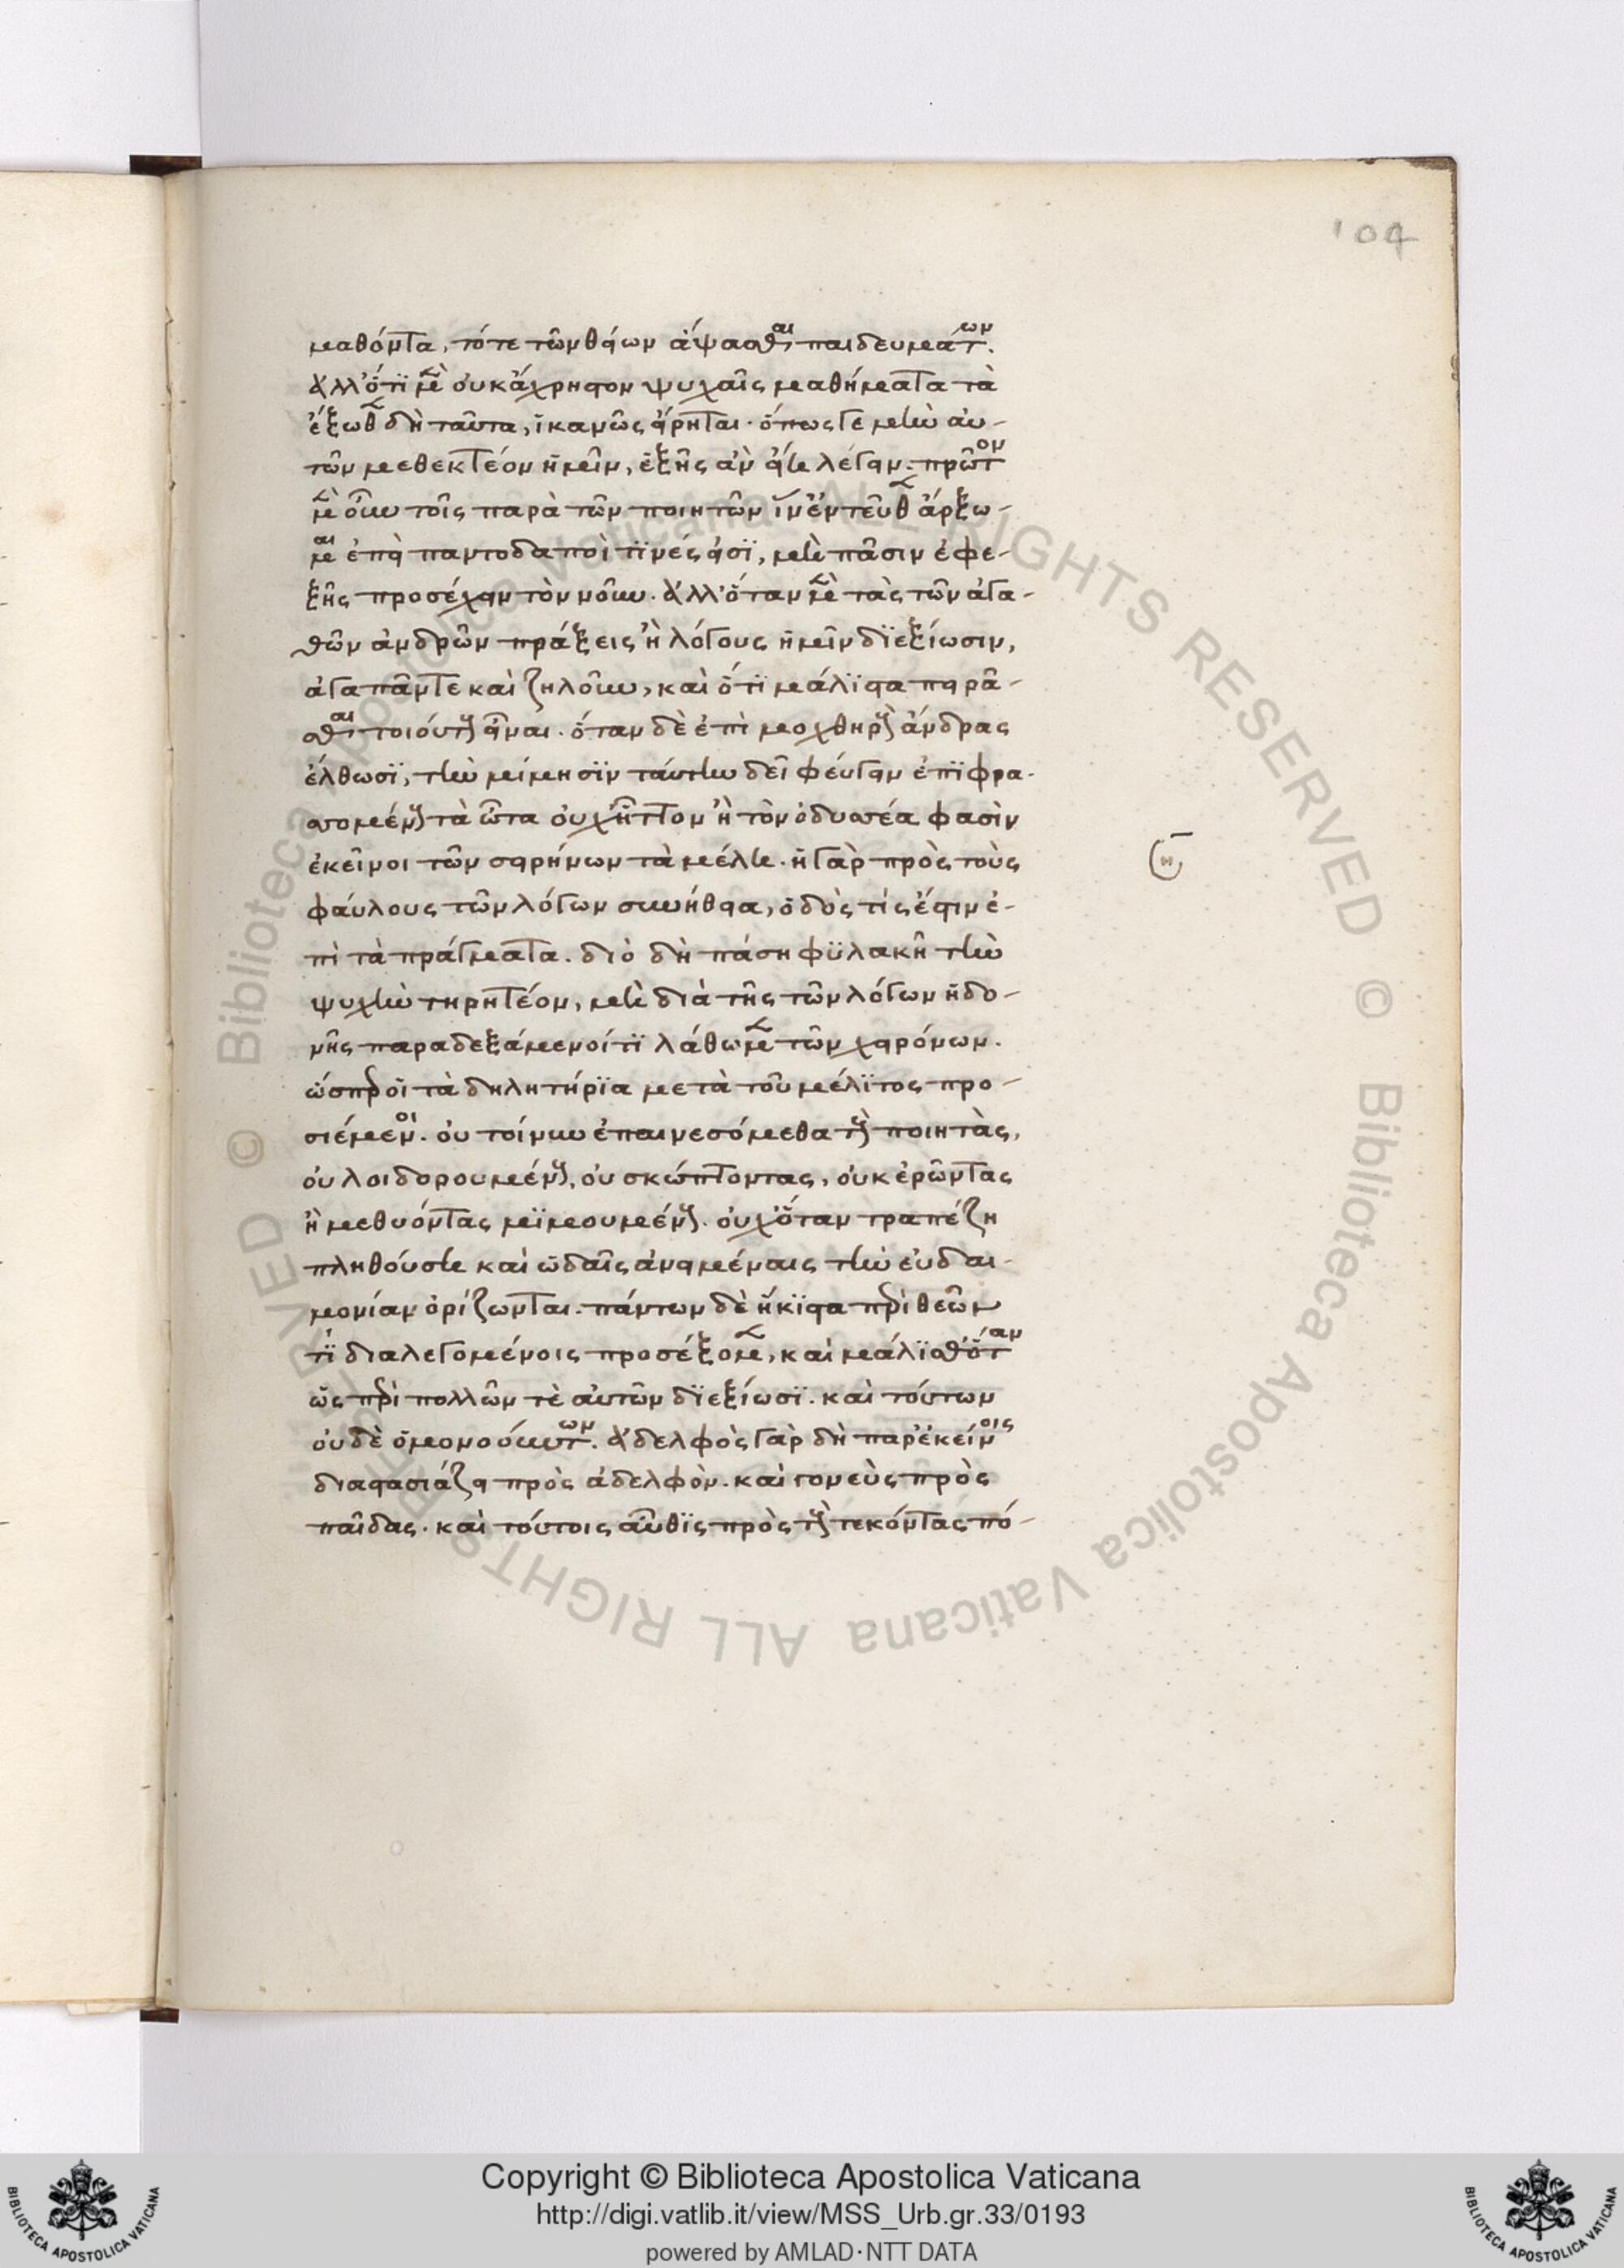 104
μαθόντα, τότε τῶν θείων ἅψασθαι παιδευμάτων.
Ἀλλ' ὅτι μὲν οὐκ ἄχρηστον ψυχαῖς μαθήματα τὰ
ἔξωθεν δὴ ταῦτα, ἱκανῶς εἴρηται. ὅπως γε μὴν αὐ-
τῶν μεθεκτέον ἡμῖν, ἑξῆς ἂν εἴη λέγειν. πρῶτον
μὲν οὖν τοῖς παρὰ τῶν ποιητῶν ἵν' ἐντεῦθεν ἄρξω-
μαι ἐπεὶ παντοδαποί τινές εἰσϊ, μὴ πᾶσιν ἐφε-
ξῆς προσέχειν τὸν νοῦν. Ἀλλ' ὅταν μὲν τὰς τῶν ἀγα-
θῶν ἀνδρῶν πράξεις ἢ λόγους ἡμῖν διεξίωσιν,
ἀγαπᾶν τε καὶ ζηλοῦν, καὶ ὅτι μάλιστα πειρᾶ-
σθαι τοιούτους εἶναι. ὅταν δὲ ἐπὶ μοχθηροὺς ἄνδρας
ἔλθωσϊ, τὴν μίμησϊν ταύτην δεῖ φεύγειν ἐπιφρα-
σσομένους τὰ ὦτα οὐχ ἧττον ἢ τὸν ὀδυσσέα φασὶν
ἐκεῖνοι τῶν σειρήνων τὰ μέλη. ἡ γὰρ πρὸς τοὺς
φαύλους τῶν λόγων συνήθεια, ὁδός τίς ἔστιν ἐ-
πὶ τὰ πράγματα. διὸ δὴ πάση φϋλακῆ τὴν
ψυχὴν τηρητέον, μὴ διὰ τῆς τῶν λόγων ἡδο-
νῆς παραδεξάμενοί τϊ λάθωμεν τῶν χειρόνων.
ὥσπερ οἱ τὰ δηλητήρϊα μετὰ τοῦ μέλϊτος προ-
σιέμενοι. οὐ τοίνυν ἐπαινεσόμεθα τοὺς ποιητὰς,
οὐ λοιδορουμένους, οὐ σκώπτοντας, οὐκ ἐρῶντας
ἢ μεθυόντας μϊμουμένους. οὐχ ὅταν τραπέζη
πληθούση καὶ ὠδαῖς ἀνειμέναις τὴν εὐδαι-
μονίαν ὁρίζωνται. πάντων δὲ ἥκϊστα περὶ θεῶν
τϊ διαλεγομένοις προσέξομεν, καὶ μάλϊσθ' ὅταν
ὡς περὶ πολλῶν τὲ αὐτῶν δϊεξίωσϊ. καὶ τούτων
οὐδὲ ὁμονοούντων. Ἀδελφὸς γὰρ δὴ παρ' ἐκείνοις
διαστασιάζει πρὸς ἀδελφὸν. καὶ γονεὺς πρὸς
παῖδας. καὶ τούτοις αὖθϊς πρὸς τοὺς τεκόντας πό-
Copyright © Biblioteca Apostolica Vaticana
http://digi.vatlib.it/view/MSS_Urb.gr.33/0193
powered by AMLAD·NTT DATA